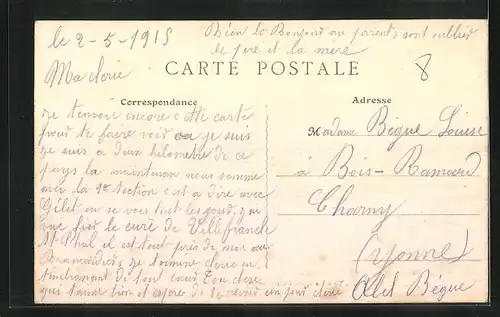 le 2-5-1915
Bien le Bonjour au parents sans oublier
le père et la mère
8
Ma cherie
CARTE POSTALE
Correspondance
Adresse
je t'envoie encore cette carte
pour te faire voir ou je suis
je suis a deux kilometre de ce
pays la maintenant nous somme
avec la 1re section c'est a dire avec
on se vois tout les jours j'ai
vue hier le curé de Villefranche
St Phal il est tout près de moi au
je termine cherie en
t'embrassant de tout coeur Ton cheri
qui t'aime bien et espere de te revoir un jour cherie
Madame Bégue Louise
à Bois-Ramard
Charny
(Yonne)
Bégue